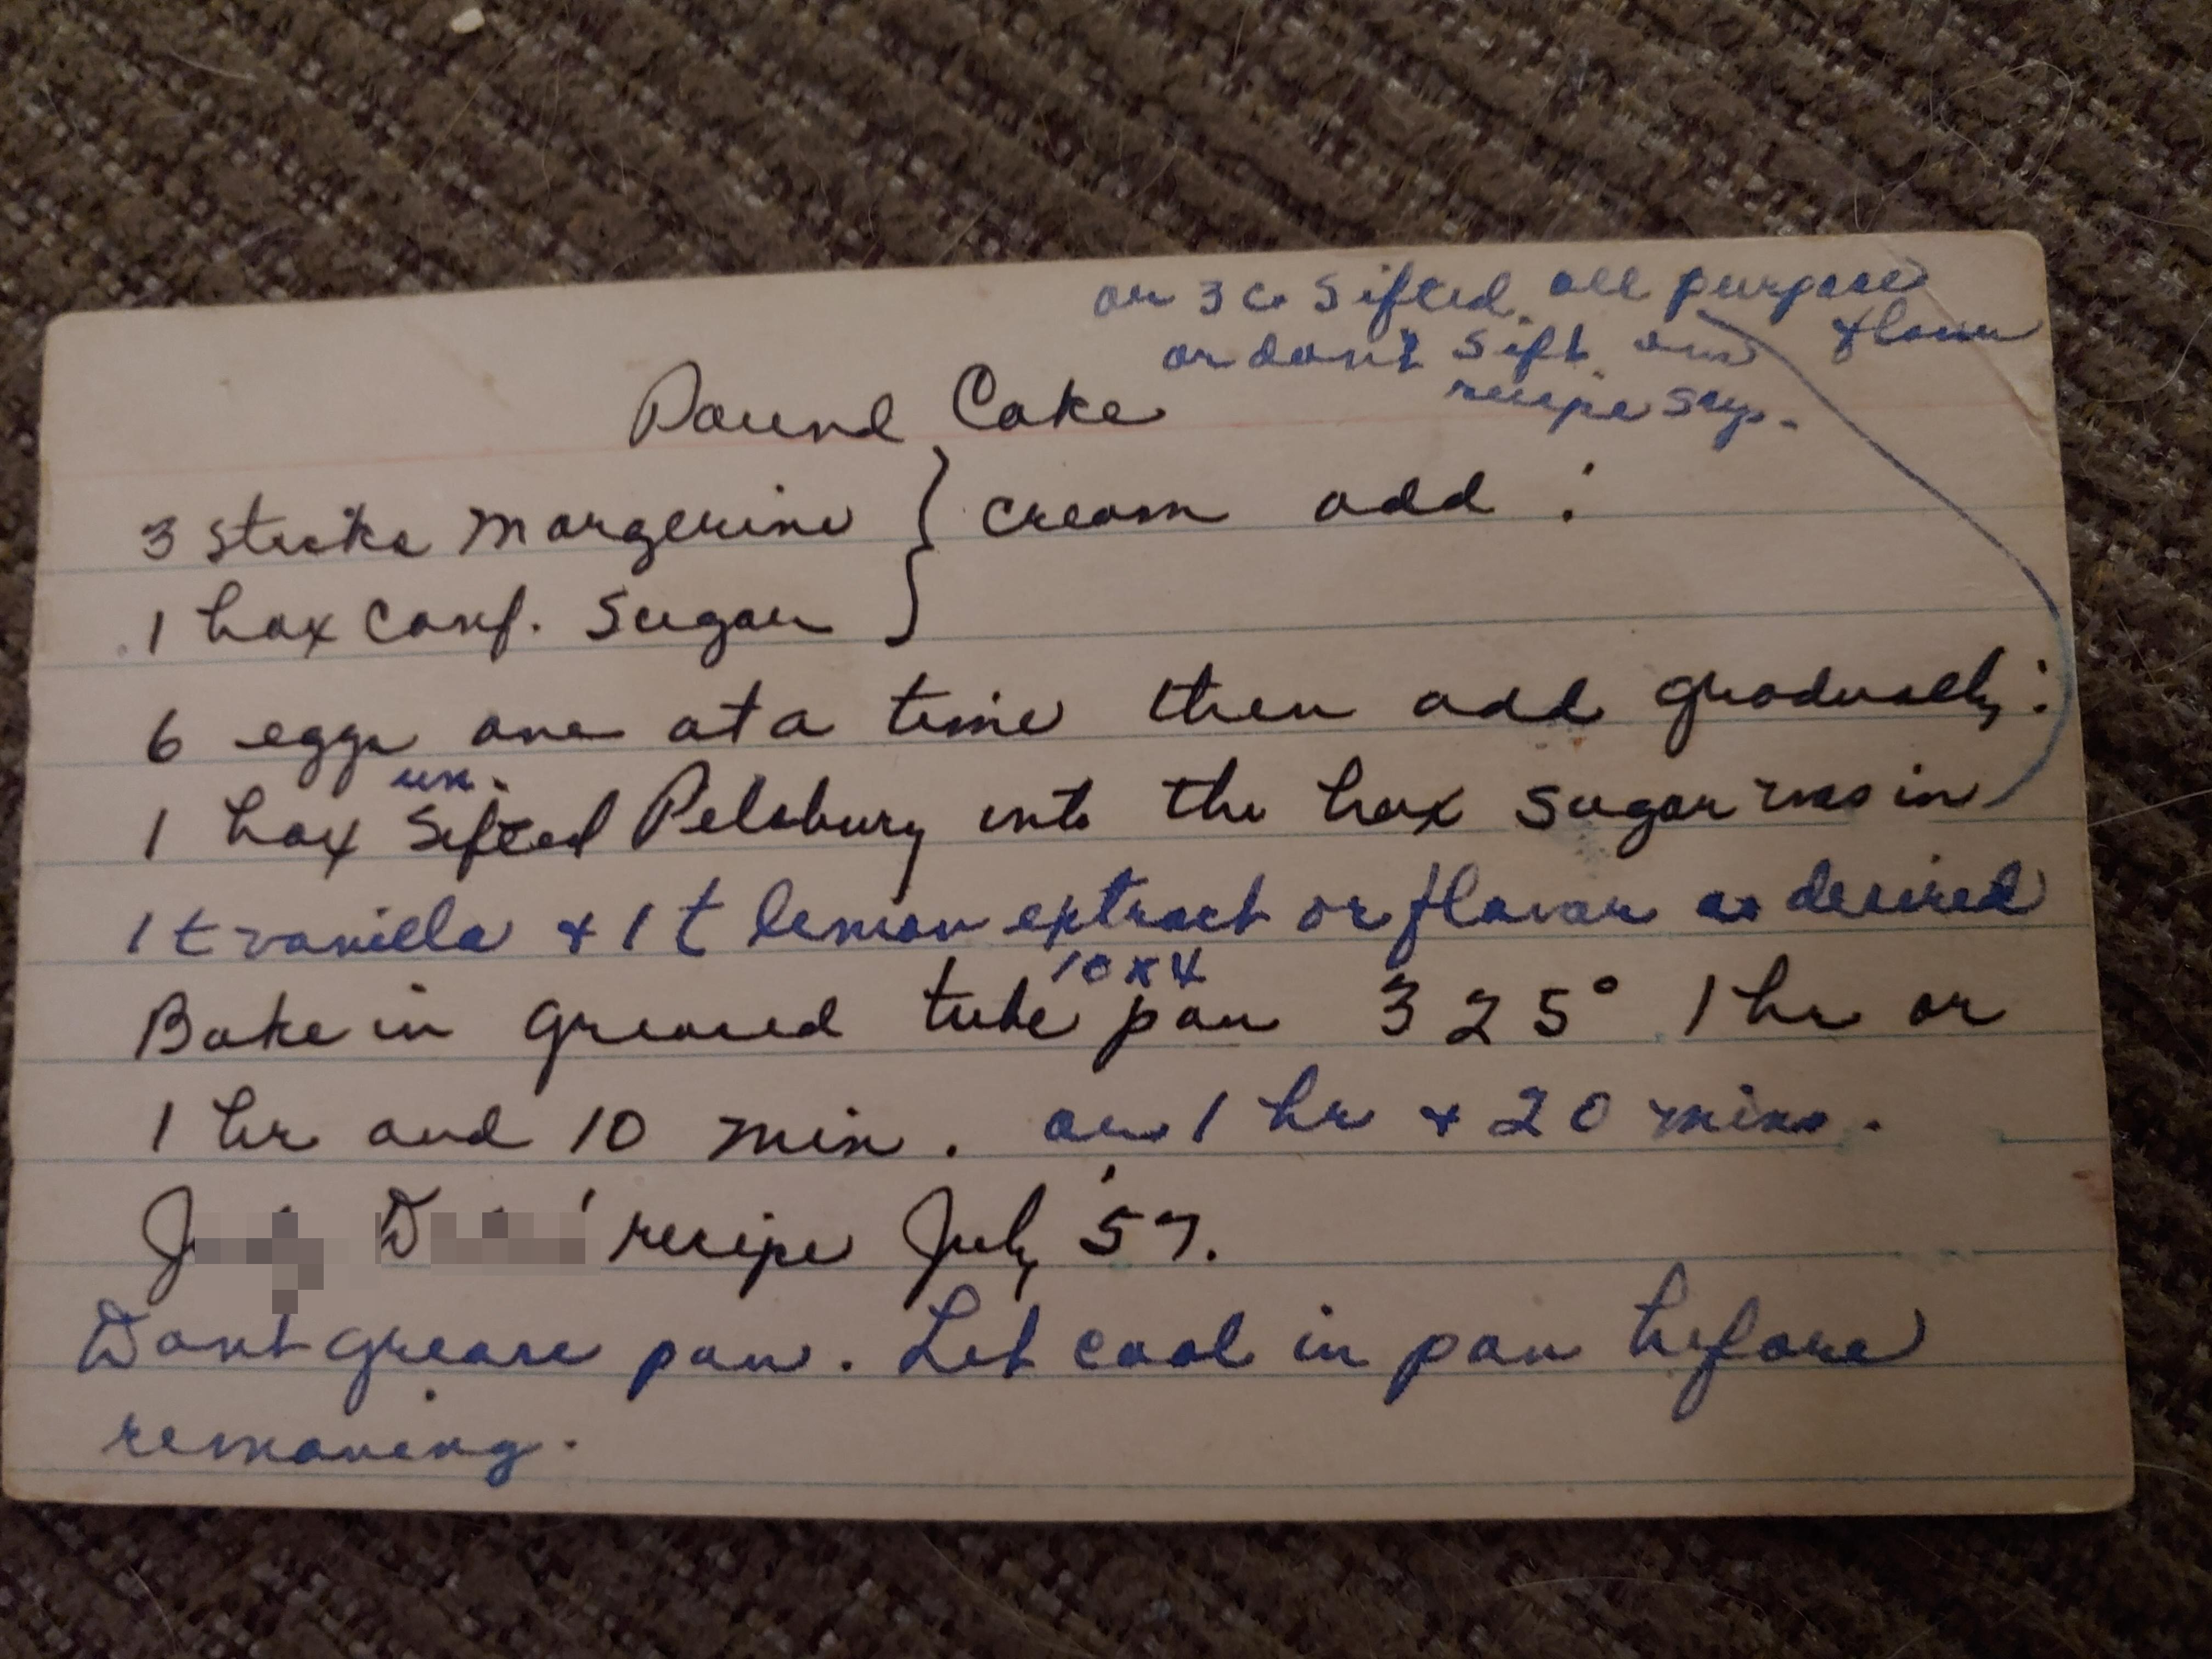 or 3 c. Sifted all purpose
flour
or don't sift one
recipe says.
Pound Cake
3 sticks Margerine } cream add :
1 box Conf. Sugar
6 eggs one at a time then add gradually :
un.
1 box Sifted Pelsbury into the box sugar was in
1 t vanilla + 1 t lemon extract or flavor as desired
10 x 4
Bake in greased tube pan 325° 1 hr or
1 hr and 10 min. or 1 hr + 20 mins.
recipe July '57.
Dont grease pan. Let cool in pan before
removing.